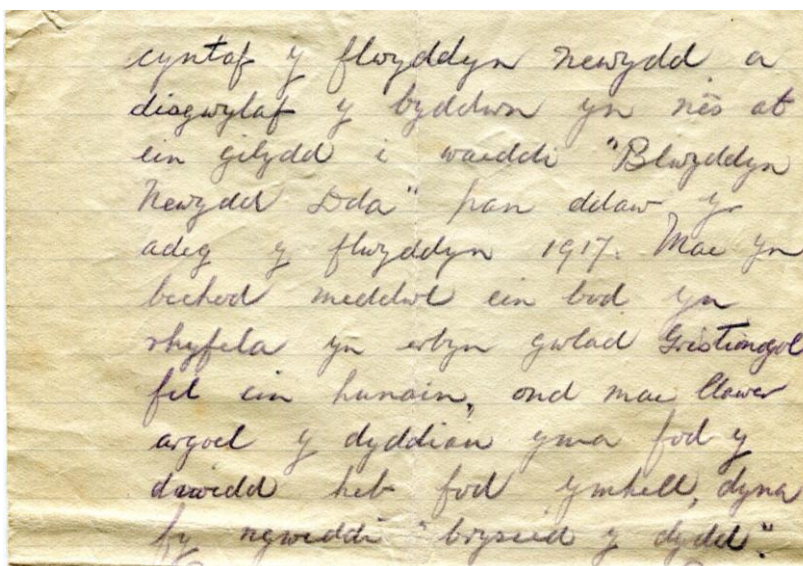 cyntaf y flwyddyn newydd a
disgwylaf y byddwn yn nês at
ein gilydd i waeddi "Blwyddyn
Newydd Dda" pan ddaw yr
adeg y flwyddyn 1917. Mae yn
bechod meddwl ein bod yn
rhyfela yn erbyn gwlad Gristionogol
fel ein hunain, ond mae llawer
argoel y dyddiau yma fod y
diwedd heb fod ymhell, dyna
fy ngweddi "brysied y dydd".